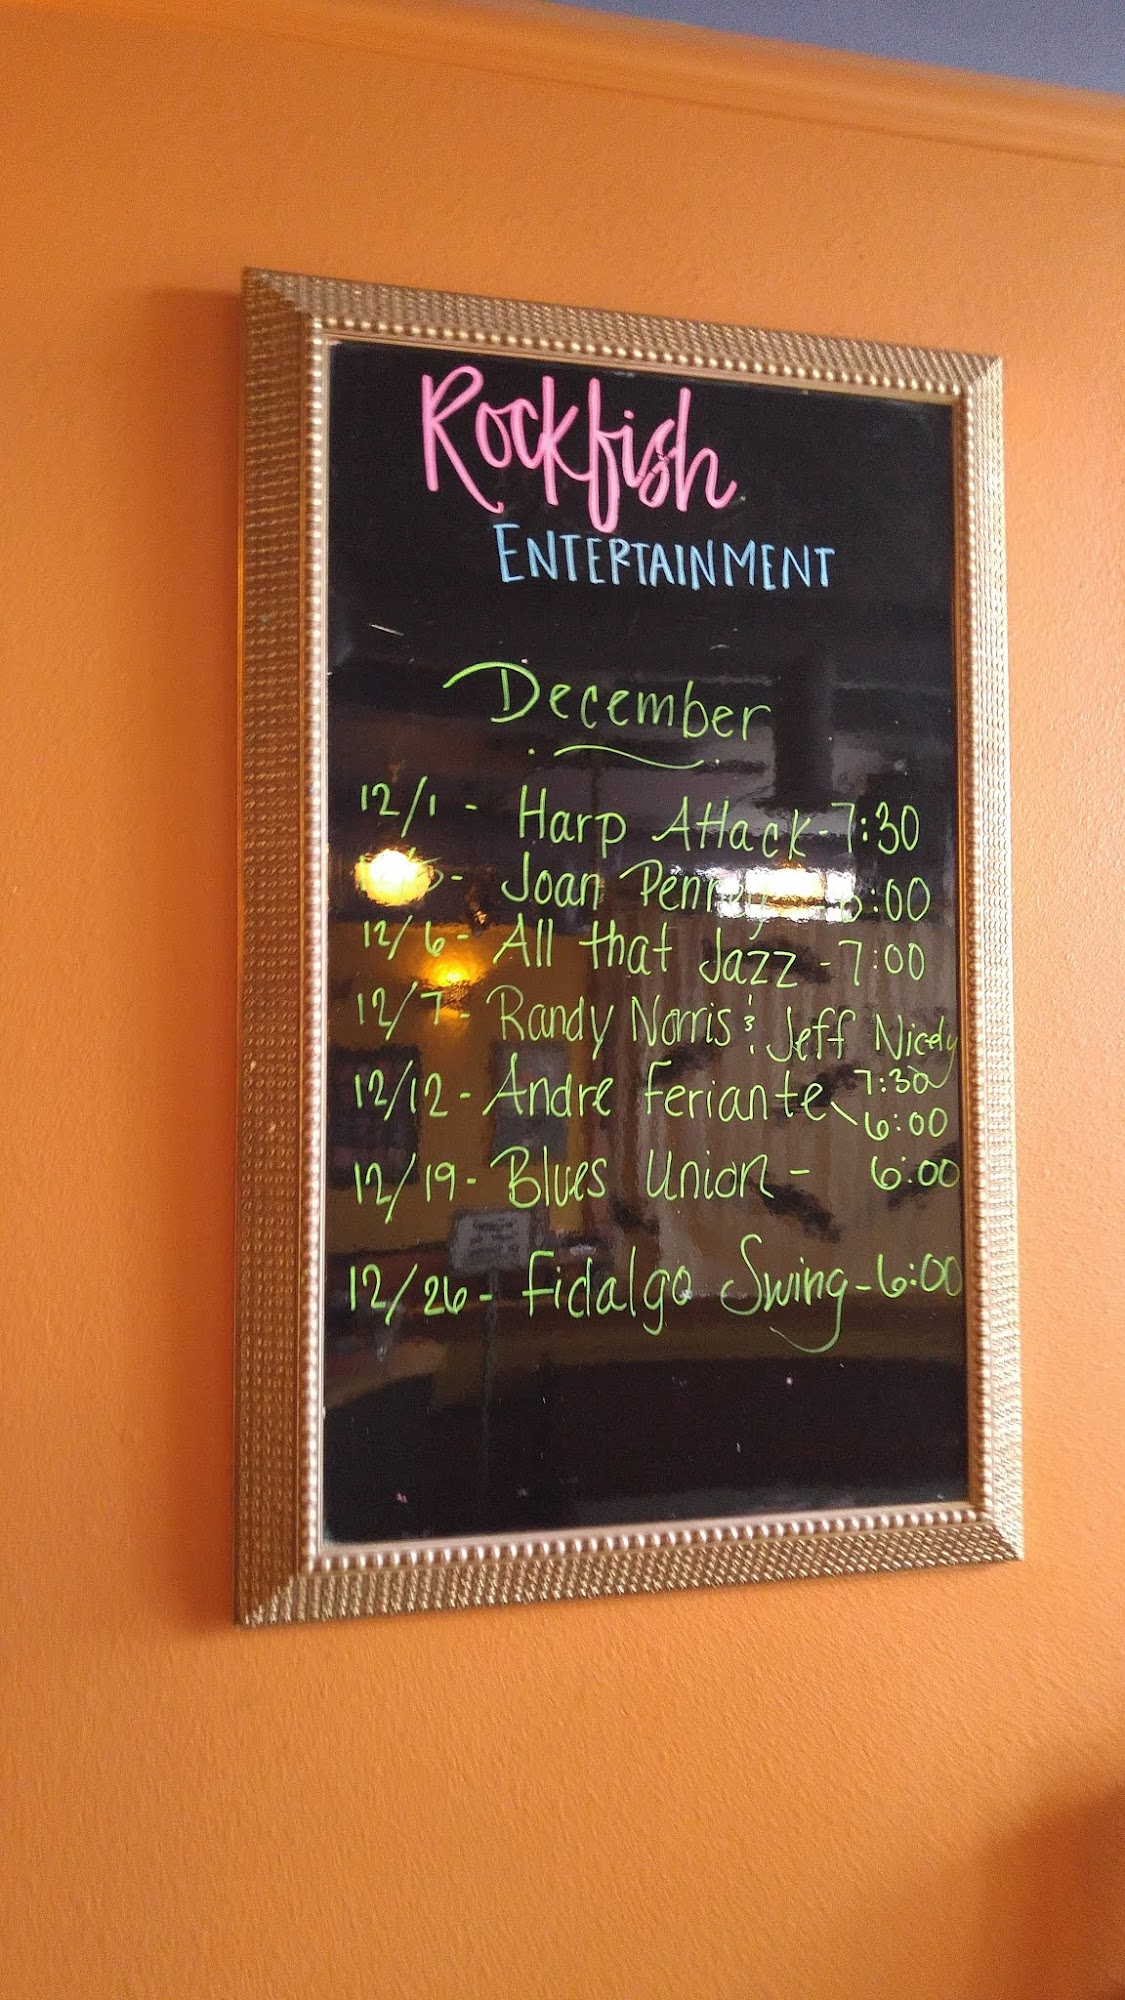 Rockfish
ENTERTAINMENT
December
12/1 - Harp Attack - 7:30
12/5 - Joan Penney - 6:00
12/6 - All that Jazz - 7:00
12/7 - Randy Norris & Jeff Nicely
7:30
12/12 - Andre Feriante \ 6:00
12/19 - Blues Union - 6:00
12/26 - Fidalgo Swing - 6:00